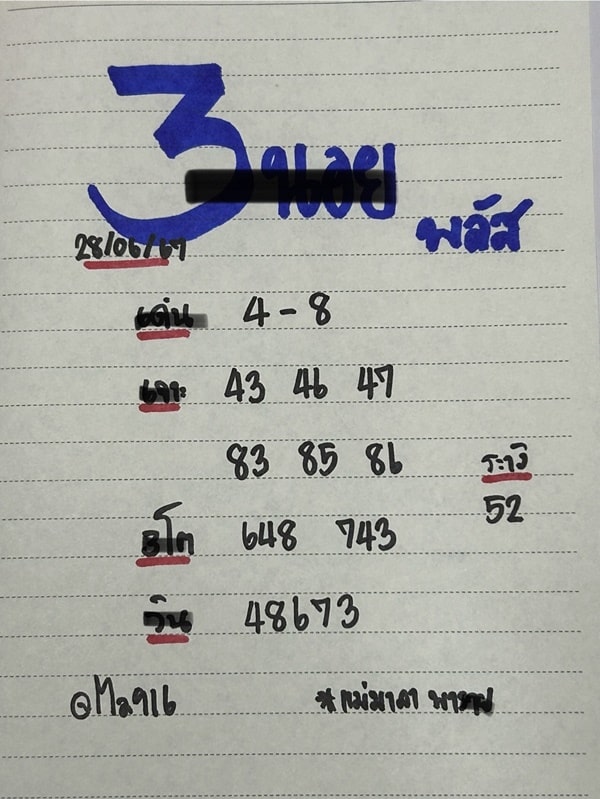 3 นอย
พลัส
28/06/67
เด่น 4-8
เจาะ 43 46 47
83 85 86
ระวัง
52
648 743
วิน 48673
@Ma916
*แม่มาดา